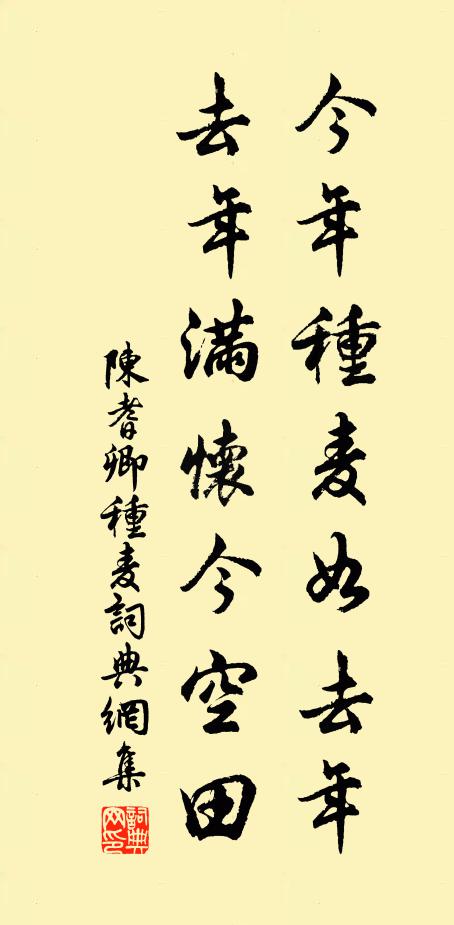 今年種麦如去年
去年滿懷今空田
陳耆卿種麦詞典網集
詞典网印